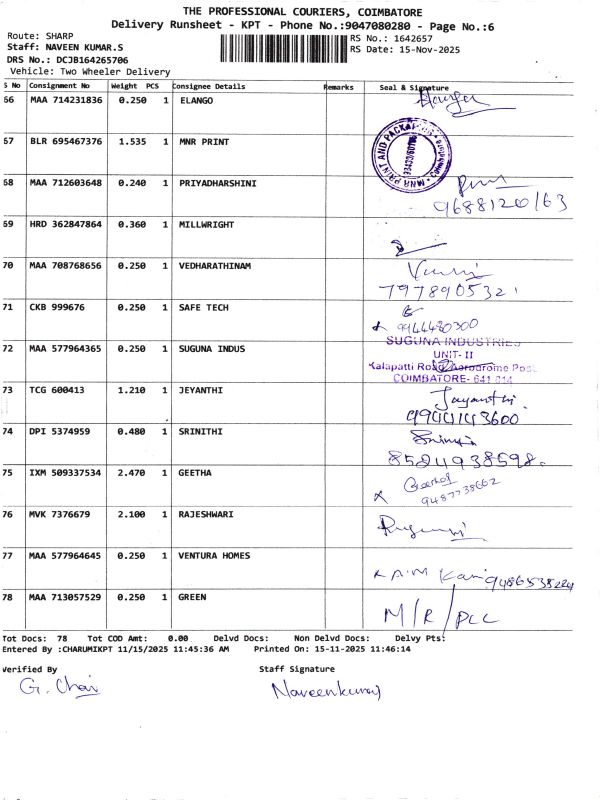 THE PROFESSIONAL COURIERS, COIMBATORE
Delivery Runsheet - KPT - Phone No.:9047080280 - Page No.:6
Route: SHARP
RS No.: 1642657
Staff: NAVEEN KUMAR.S
RS Date: 15-Nov-2025
DRS No.: DCJB164265706
Vehicle: Two Wheeler Delivery
S No Consignment No Weight PCS Consignee Details Remarks Seal & Signature
66 MAA 714231836 0.250 1 ELANGO
67 BLR 695467376 1.535 1 MNR PRINT
MNR PRINT AND PACKAGING
68 MAA 712603648 0.240 1 PRIYADHARSHINI
9688120163
69 HRD 362847864 0.360 1 MILLWRIGHT
70 MAA 708768656 0.250 1 VEDHARATHINAM
7978905321
71 CKB 999676 0.250 1 SAFE TECH
9944480300
72 MAA 577964365 0.250 1 SUGUNA INDUS
SUGUNA INDUSTRIES
UNIT- II
Kalapatti Road, Aerodrome Post
COIMBATORE- 641 014
73 TCG 600413 1.210 1 JEYANTHI
Jayanthi
9944143600
74 DPI 5374959 0.480 1 SRINITHI
8524938598.
75 IXM 509337534 2.470 1 GEETHA
9487738662
76 MVK 7376679 2.100 1 RAJESHWARI
77 MAA 577964645 0.250 1 VENTURA HOMES
9486538224
78 MAA 713057529 0.250 1 GREEN
M/R/PLL
Tot Docs: 78 Tot COD Amt: 0.00 Delvd Docs: Non Delvd Docs: Delvy Pts:
Entered By :CHARUMIKPT 11/15/2025 11:45:36 AM Printed On: 15-11-2025 11:46:14
Verified By Staff Signature
G. Chai Naveenkumar